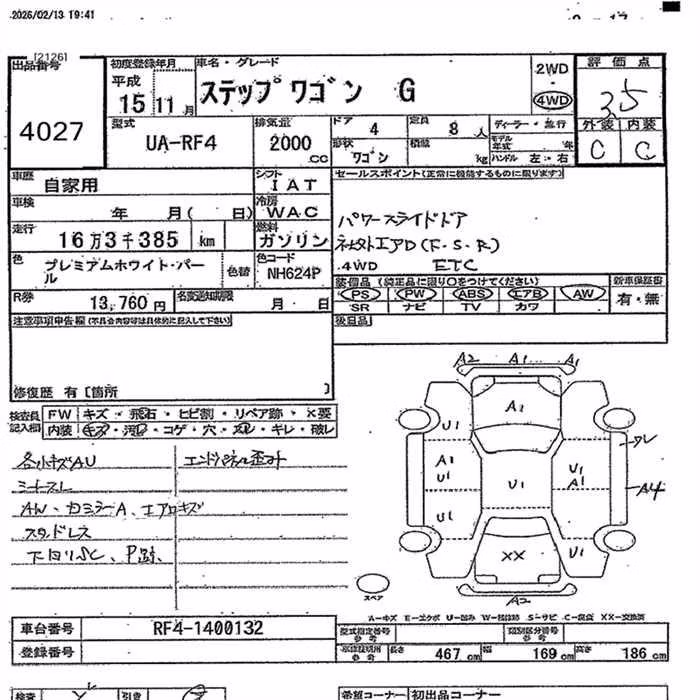 2026/02/13 19:41
[2126]
出品番号
4027
初度登録年月
平成
15 11 月
車名・グレード
ステップワゴン G
2WD
4WD
評価点
3.5
外装 内装
C C
型式
UA-RF4
排気量
2000 cc
ドア
4
定員
8 人
形状
ワゴン
積載
kg
ディーラー・並行
モデル年式 年
ハンドル 左・右
車歴
自家用
シフト
IAT
車検
年 月( 日)
冷房
WAC
走行
16万3千385 km
燃料
ガソリン
色
プレミアムホワイト・パール
色替
色コード
NH624P
R券
13,760 円
名変通知期限
月 日
セールスポイント(正常に機能するものに限ります)
パワースライドドア
ネセタ外エアロ(F.S.R)
4WD ETC
装備品(純正品に限り○をつけてください)
PS PW ABS エアB AW
SR ナビ TV カワ
新車保証書
有・無
後日品
注意事項申告欄(不具合内容等は具体的に記入して下さい)
修復歴 有[箇所 ]
検査員記入欄
FW キズ・飛石・ヒビ割・リペア跡・X要
内装 キズ・汚レ・コゲ・穴・スレ・キレ・破レ
各小キズAU
エンドパネル歪ミ
シートスレ
AW、カミラーA、エアロキズ
スタッドレス
下回りSC、P跡、
A2 A1 A1
A1
U1
A1
U1
U1
U1
U1
A1
A4
U1
XX
A2
スペア
A-キズ E-エクボ U-凹み W-補修跡 S-サビ C-腐食 XX-交換済
車台番号
RF4-1400132
登録番号
型式指定番号
参考
類別区分番号
参考
車検証明用
参考
長さ 467 cm
幅 169 cm
高さ 186 cm
検査
引音
希望コーナー
初出品コーナー